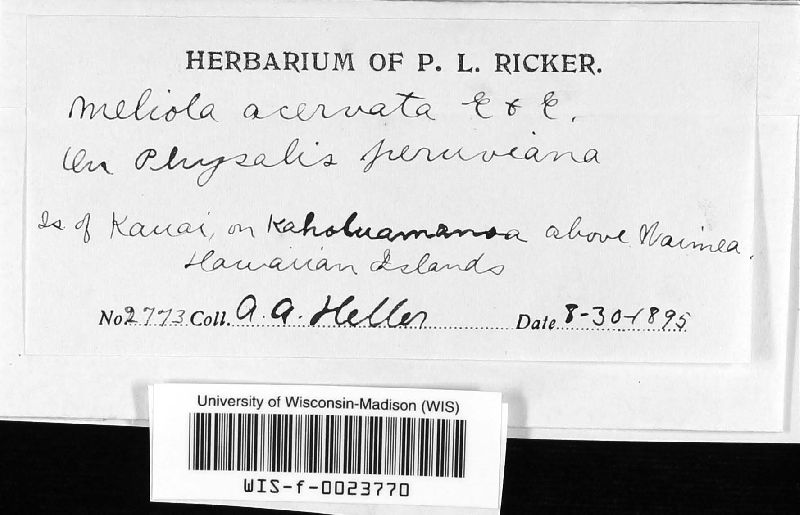 HERBARIUM OF P. L. RICKER.
Meliola acervata E & E.
On Physalis peruviana
Is of Kauai, on Kaholuamanoa above Waimea.
Hawaiian Islands
No. 2773 Coll. A. A. Heller Date 8-30-1895
University of Wisconsin-Madison (WIS)
WIS-f-0023770